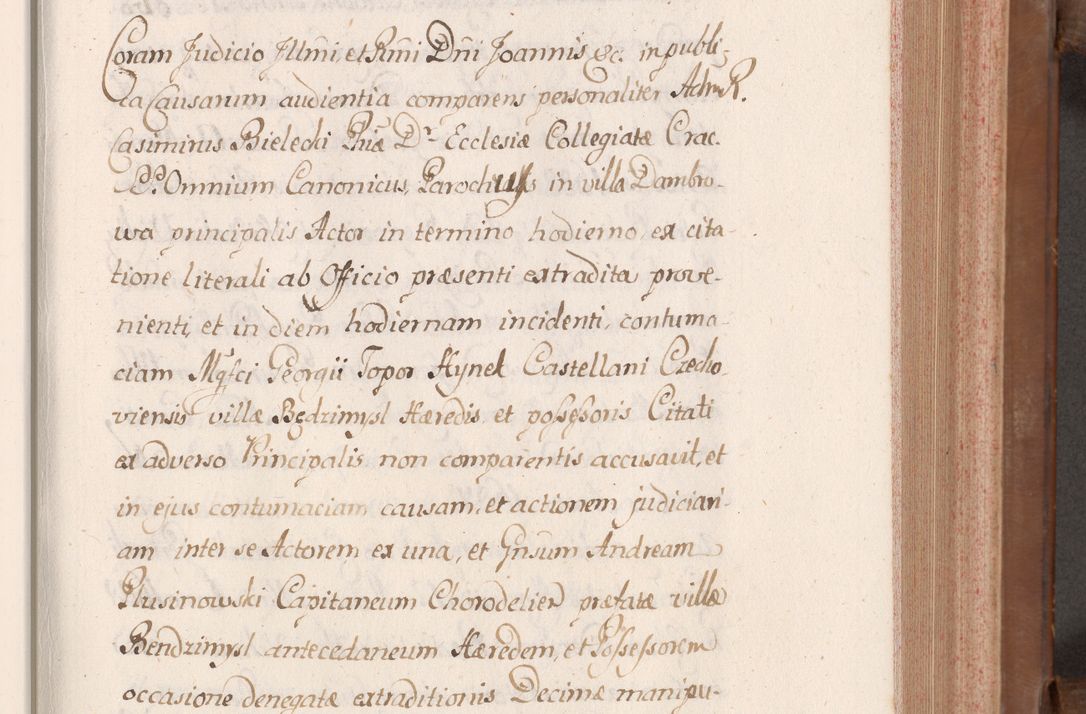 Coram Judicio Jllm̃i, et Rm̃i Dñi Joannis &c. in publi-
ca Causarum audientia comparens personaliter Adm R.
Casimirus Bielecki Phiæ Dr Ecclesiæ Collegiatæ Crac.
SS. Omnium Canonicus, Parochus in villa Dambro-
wa principalis Actor in termino hodierno, ex cita-
tione literali ab Officio præsenti extradita prove-
nienti, et in diem hodiernam incidenti, contuma-
ciam Mgfci Georgii Topor Hynek Castellani Czecho-
viensis villæ Będzimysl Hæredis, et possessoris Citati
ex adverso Principalis non comparentis accusavit, et
in ejus contumaciam, causam, et actionem judiciari-
am inter se Actorem ex una, et Gnsum Andream
Rlusinowski Capitaneum Chorodelien præfatæ villæ
Bendzimysl antecedaneum Hæredem, et Possessorem
occasione denegatæ extraditionis Decimæ manipu-